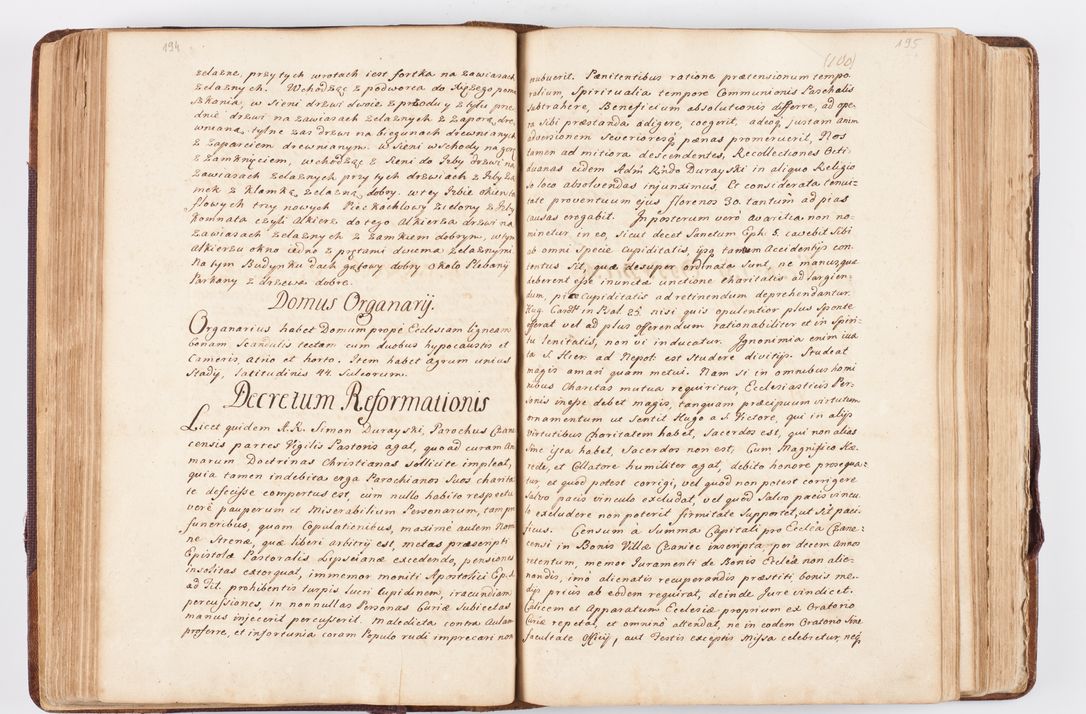 194
zelazne, przy tych wrotach iest fortka na zawiasach
zelaznych. Wchodząc z podworca do Xiężego pome
szkania, w sieni drzwi dwoie z przodu y z tyłu prze
dnie drzwi na zawiasach zelaznych z Zaporą dre
wnianą, tylne zas drzwi na biegunach drewnianych
z zaparciem drewnianym. w sieni wschody na gorę
z zamknięciem, wchodząc z sieni do Izby drzwi na
zawiasach zelaznych przy tych drzwiach z Izby Za
mek z klamką zelazną dobry. w tey Izbie okien
flowych trzy nowych Piec kachlowy zielony z Izby
komnata czyli Alkierz do tego Alkierza drzwi na
zawiasach zelaznych z zamkiem dobrym, w tym
alkierzu okno iedno z prętami dwuma zelaznymi
Na tym Budynku dach gątowy dobry okoto Plebanij
Parkany z drzewa dobre.
Domus Organarij.
Organarius habet Domum prope Ecclesiam ligneam
bonam Scandulis tectam cum duobus hypocaustis et
Cameris, atrio et horto. Item habet agrum unius
Stadij, latitudinis 44. Sulcorum.
Decretum Reformationis
Licet quidem A.R. Simon Durayski, Parochus Czane
censis partes Vigilis Pastoris agat, quo ad curam Ani
marum Doctrinas Christianas sollicite impleat,
quia tamen indebita erga Parochianos Suos charita
te defecisse compertus est, cum nullo habito respectu
vere pauperum et Miserabilium Personarum, tam pro
funeribus, quam Copulationibus, maxime autem Nomi
ne Strenæ, quæ liberi arbitrij est, metas præscripti
Epistolæ Pastoralis Lipscianæ excedendo, pensiones
insolitas extorquat, immemor moniti Apostolici Ep. 1.
ad Tit. prohibentis turpis lucri Cupidinem, iracundiam
percussiones, in nonnullas Personas Curiæ Subiectas
manus injecerit percusserit. Maledicta contra Aulam
proferre, et infortunia coram Populo rudi imprecari non
195
(100)
nubuerit. Pænitentibus ratione prætensionum tempo
ralium, Spiritualia tempore Communionis Paschalis
subtrahere, Beneficium absolutionis differre, ad ope
ra Sibi præstanda adigere, coegerit, adeoq justam anim
adversionem Severioresq pænas promerucrit, Nos
tamen ad mitiora descendentes, Recollectiones Octi
duanas eidem Admo Rndo Durayski in aliquo Religio
so loco absolvendas injunximus, Et considerata tenui
tate proventuum ejus florenos 30. tantum ad pias
causas erogabit. In posterum vero avaritia non no
minetur in eo, Sicut decet Sanctum Eph. 5. cavebit Sibi
ab omni Specie cupiditatis, ipsq tantum Accidentijs con
tentus sit, quæ desuper ordinata sunt, ne manus quæ
deberent esse inuncta unctione charitatis ad largien
dum, cupiditatis ad retinendum deprehendantur.
Hug. Cardlis in Psal. 25. nisi quis opulentior plus sponte
offerat vel ad plus offerendum rationabiliter et in Spiri
tu lenitatis, non vi inducatur. Ignominia enim iux
ta S. Hier. ad Nepot. est Studere divitijs. Studeat
magis amari quam metui. Nam si in omnibus homi
nibus Charitas mutua requiritur, Ecclesiasticis Per
sonis inesse debet magis, tanquam præcipuum virtutum
ornamentum ut Sentit Hugo a S. Victore, qui in alijs
virtutibus Charitatem habet, Sacerdos est, qui non alias
sine ista habet, Sacerdos non est; Cum Magnifico Hæ
rede, et Collatore humiliter agat, debito honore prosequa
tur, et quod potest corrigi, vel quod non potest corrigere
Salvo pacis vinculo excludat, vel quod Salvo pacis vincu
lo excludere non poterit firmitate Supportet, ut sit paci
ficus. Censum a Summa Capitali pro Ecclesia Czane
censi in Bonis Villæ Czaniec inscripta per decem annos
retentum, memor Juramenti de Bonis Ecclæ non alie
nandis, imo alienatis recuperandis præstiti bonis me
dijs prius ab eodem requirat, deinde Jure vindicet.
Calicem et Apparatum Ecclesiæ proprium ex Oratorio
Curiæ repetat, et omnino attendat, ne in eodem Oratorio sine
facultate Officij, aut Festis exceptis Missa celebretur, neq